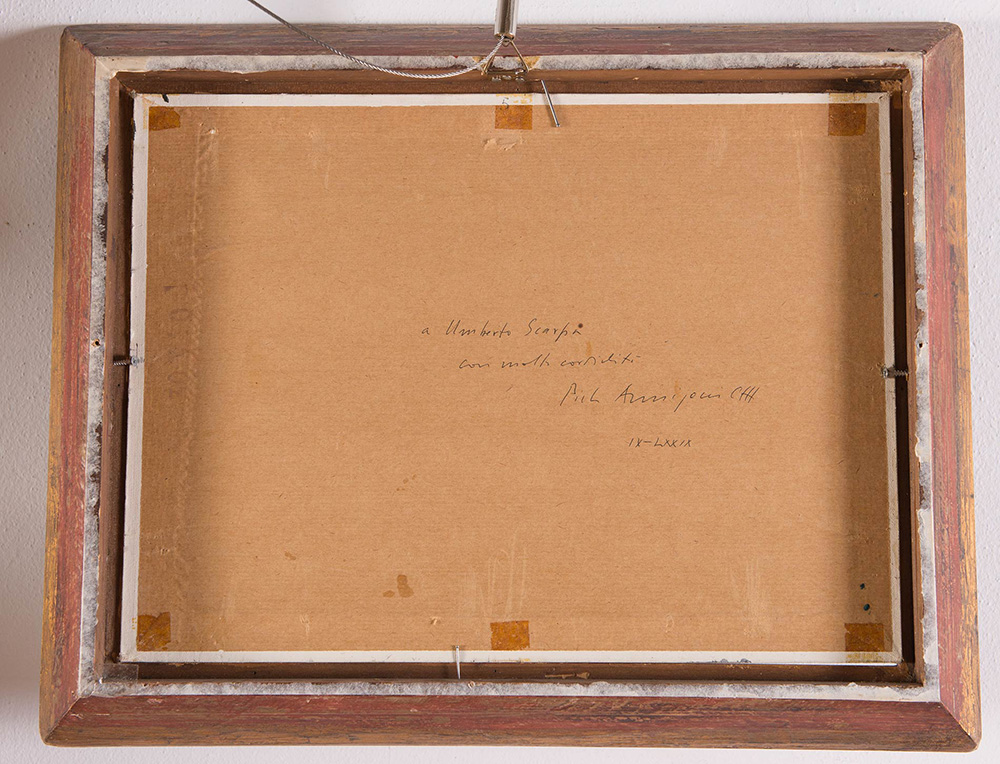 5
a Umberto Scarpa
con molta cordialità
Annigoni
IX-LXXIX